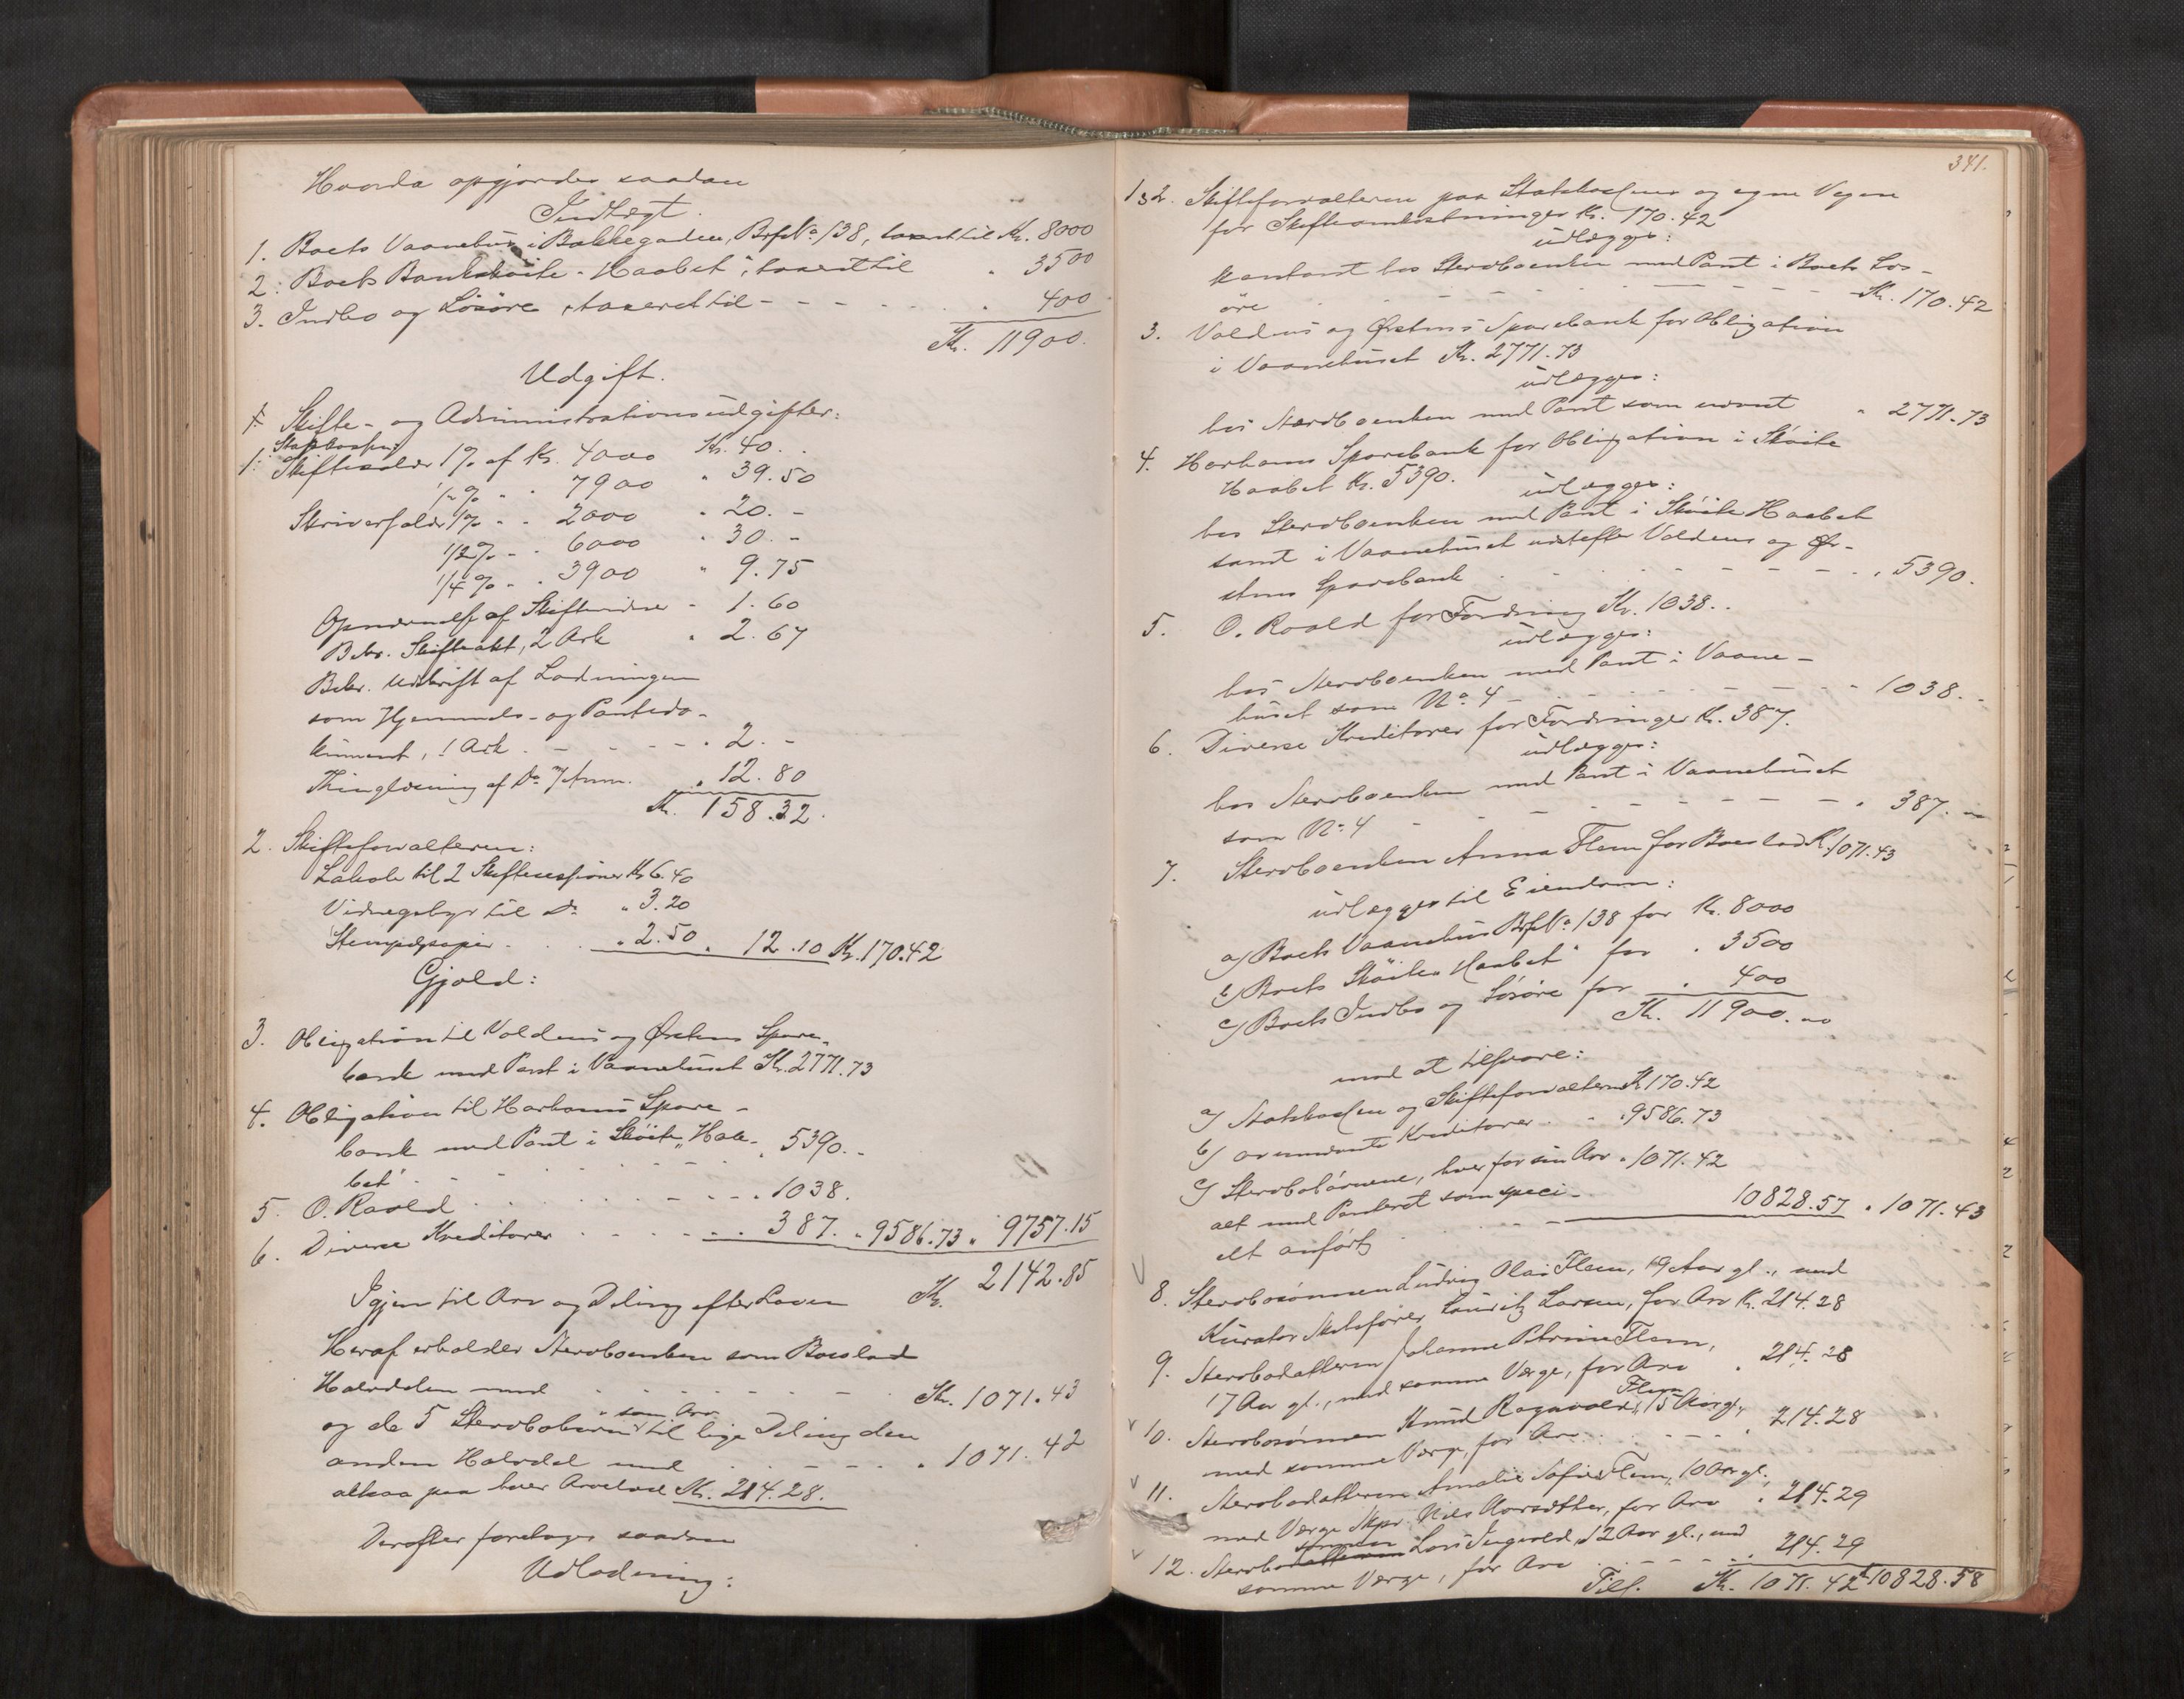 Hvorda opgjordes saadan
Indtægt.
1. Boets Vaanehus i Bakkegaden, BrfNo. 138, taxert til Kr. 8000
2. Boets Bankskøite "Haabet", taxert til " 3500
3. Indbo og Løsøre, taxeret til - - - - - 400
Kr. 11900.
Udgift.
A Skifte- og Administrationsudgifter:
Statskassen:
1. Skiftesalær 1% af Kr. 4000 Kr. 40. .
1/2% " " 7900 " 39.50
Skriversalær 1% " " 2000 " 20. -
1/2% " " 6000 " 30. -
1/4% " " 3900 " 9.75
Opnævnelse af Skiftevidner " 1.60
Bekr. Skifteakt, 2 Ark " 2.67
Bekr. Udskrift af Lodningen
som Hjemmels- og Pantedo-
kument, 1 Ark - - - - " 2. -
Thinglæsning af Do. m/ Anm. " 12.80
Kr. 158.32.
2. Skifteforvalteren:
Lokale til 2 Skiftesessioner Kr 6.40
Vidnegebyr til Do " 3.20
Stempelpapir " 2.50 " 12.10 Kr. 170.42
Gjæld:
3. Obligation til Voldens og Ørstens Spare-
bank med Pant i Vaanehuset Kr. 2771.73
4. Obligation til Harhams Spare-
bank med Pant i Skøite "Haa- " 5390. -
bet"
5. O. Roald . . . . " 1038.
6. Diverse Kreditorer . . . . " 387. " 9586.73 " 9757.15
Igjen til Arv og Deling efter Loven Kr. 2142.85
Heraf erholder Stervboenken som Boeslod
Halvdelen med . . . . Kr. 1071.43
og de 5 Stervbobørn som Arv til lige Deling den
anden Halvdel med . . . . " 1071.42
altsaa paa hver Arvelod Kr. 214.28.
Derefter foretoges saadan
Udlodning:
341.
1 & 2. Skifteforvalteren paa Statskassens og egne Vegne
for Skifteomkostninger Kr. 170.42
udlægges:
kontant hos Stervboenken med Pant i Boets Løs-
øre - - - - - Kr. 170.42
3. Voldens og Ørstens Sparebank for Obligation
i Vaanehuset Kr. 2771.73
udlægges:
hos Stervboenken med Pant som nævnt " 2771.73
4. Harhams Sparebank for Obligation i Skøite
Haabet Kr. 5390.
udlægges:
hos Stervboenken med Pant i Skøite Haabet
samt i Vaanehuset næstefter Voldens og Ør-
stens Sparebank - - - - " 5390.
5. O. Roald for Fordring Kr. 1038. .
udlægges:
hos Stervboenken med Pant i Vaane-
huset som No. 4 - - - - 1038. -
6. Diverse Kreditorer for Fordringer Kr. 387.
udlægges:
hos Stervboenken med Pant i Vaanehuset
som No. 4 - - - - " 387. -
7. Stervboenken Anna Flem for Boeslod Kr. 1071.43
udlægges til Eiendom:
a) Boets Vaanehus BrfNo. 138 for Kr. 8000
b) Boets Skøite "Haabet" for " 3500
c) Boets Indbo og Løsøre for " 400
Kr. 11900.00
mod at tilsvare:
a) Statskassen og Skifteforvalteren Kr 170.42
b) ovennævnte Kreditorer - - " 9586.73
c) Stervbobørnene, hver for sin Arv " 1071.42
alt med Panteret som speci-
elt anført - - - 10828.57 " 1071.43
8. Stervbosønnen Ludvig Olai Flem, 19 Aar gl., med
Kurator Skibsfører Lauritz Larsen, for Arv Kr. 214.28
9. Stervbodatteren Johanne Petrine Flem,
17 Aar gl., med samme Værge, for Arv " 214.28
10. Stervbosønnen Knud Ragnvald Flem, 15 Aar gl.,
med samme Værge, for Arv - - - " 214.28
11. Stervbodatteren Amalie Sofie Flem, 10 Aar gl.,
med Værge Skpr. Nils Aarsæther, for Arv " 214.29
12. Stervbodatteren sønnen Lars Ingvald, 12 Aar gl., med
samme Værge, for Arv - - - " 214.29
Tils. Kr. 1071.42 Kr 10828.58